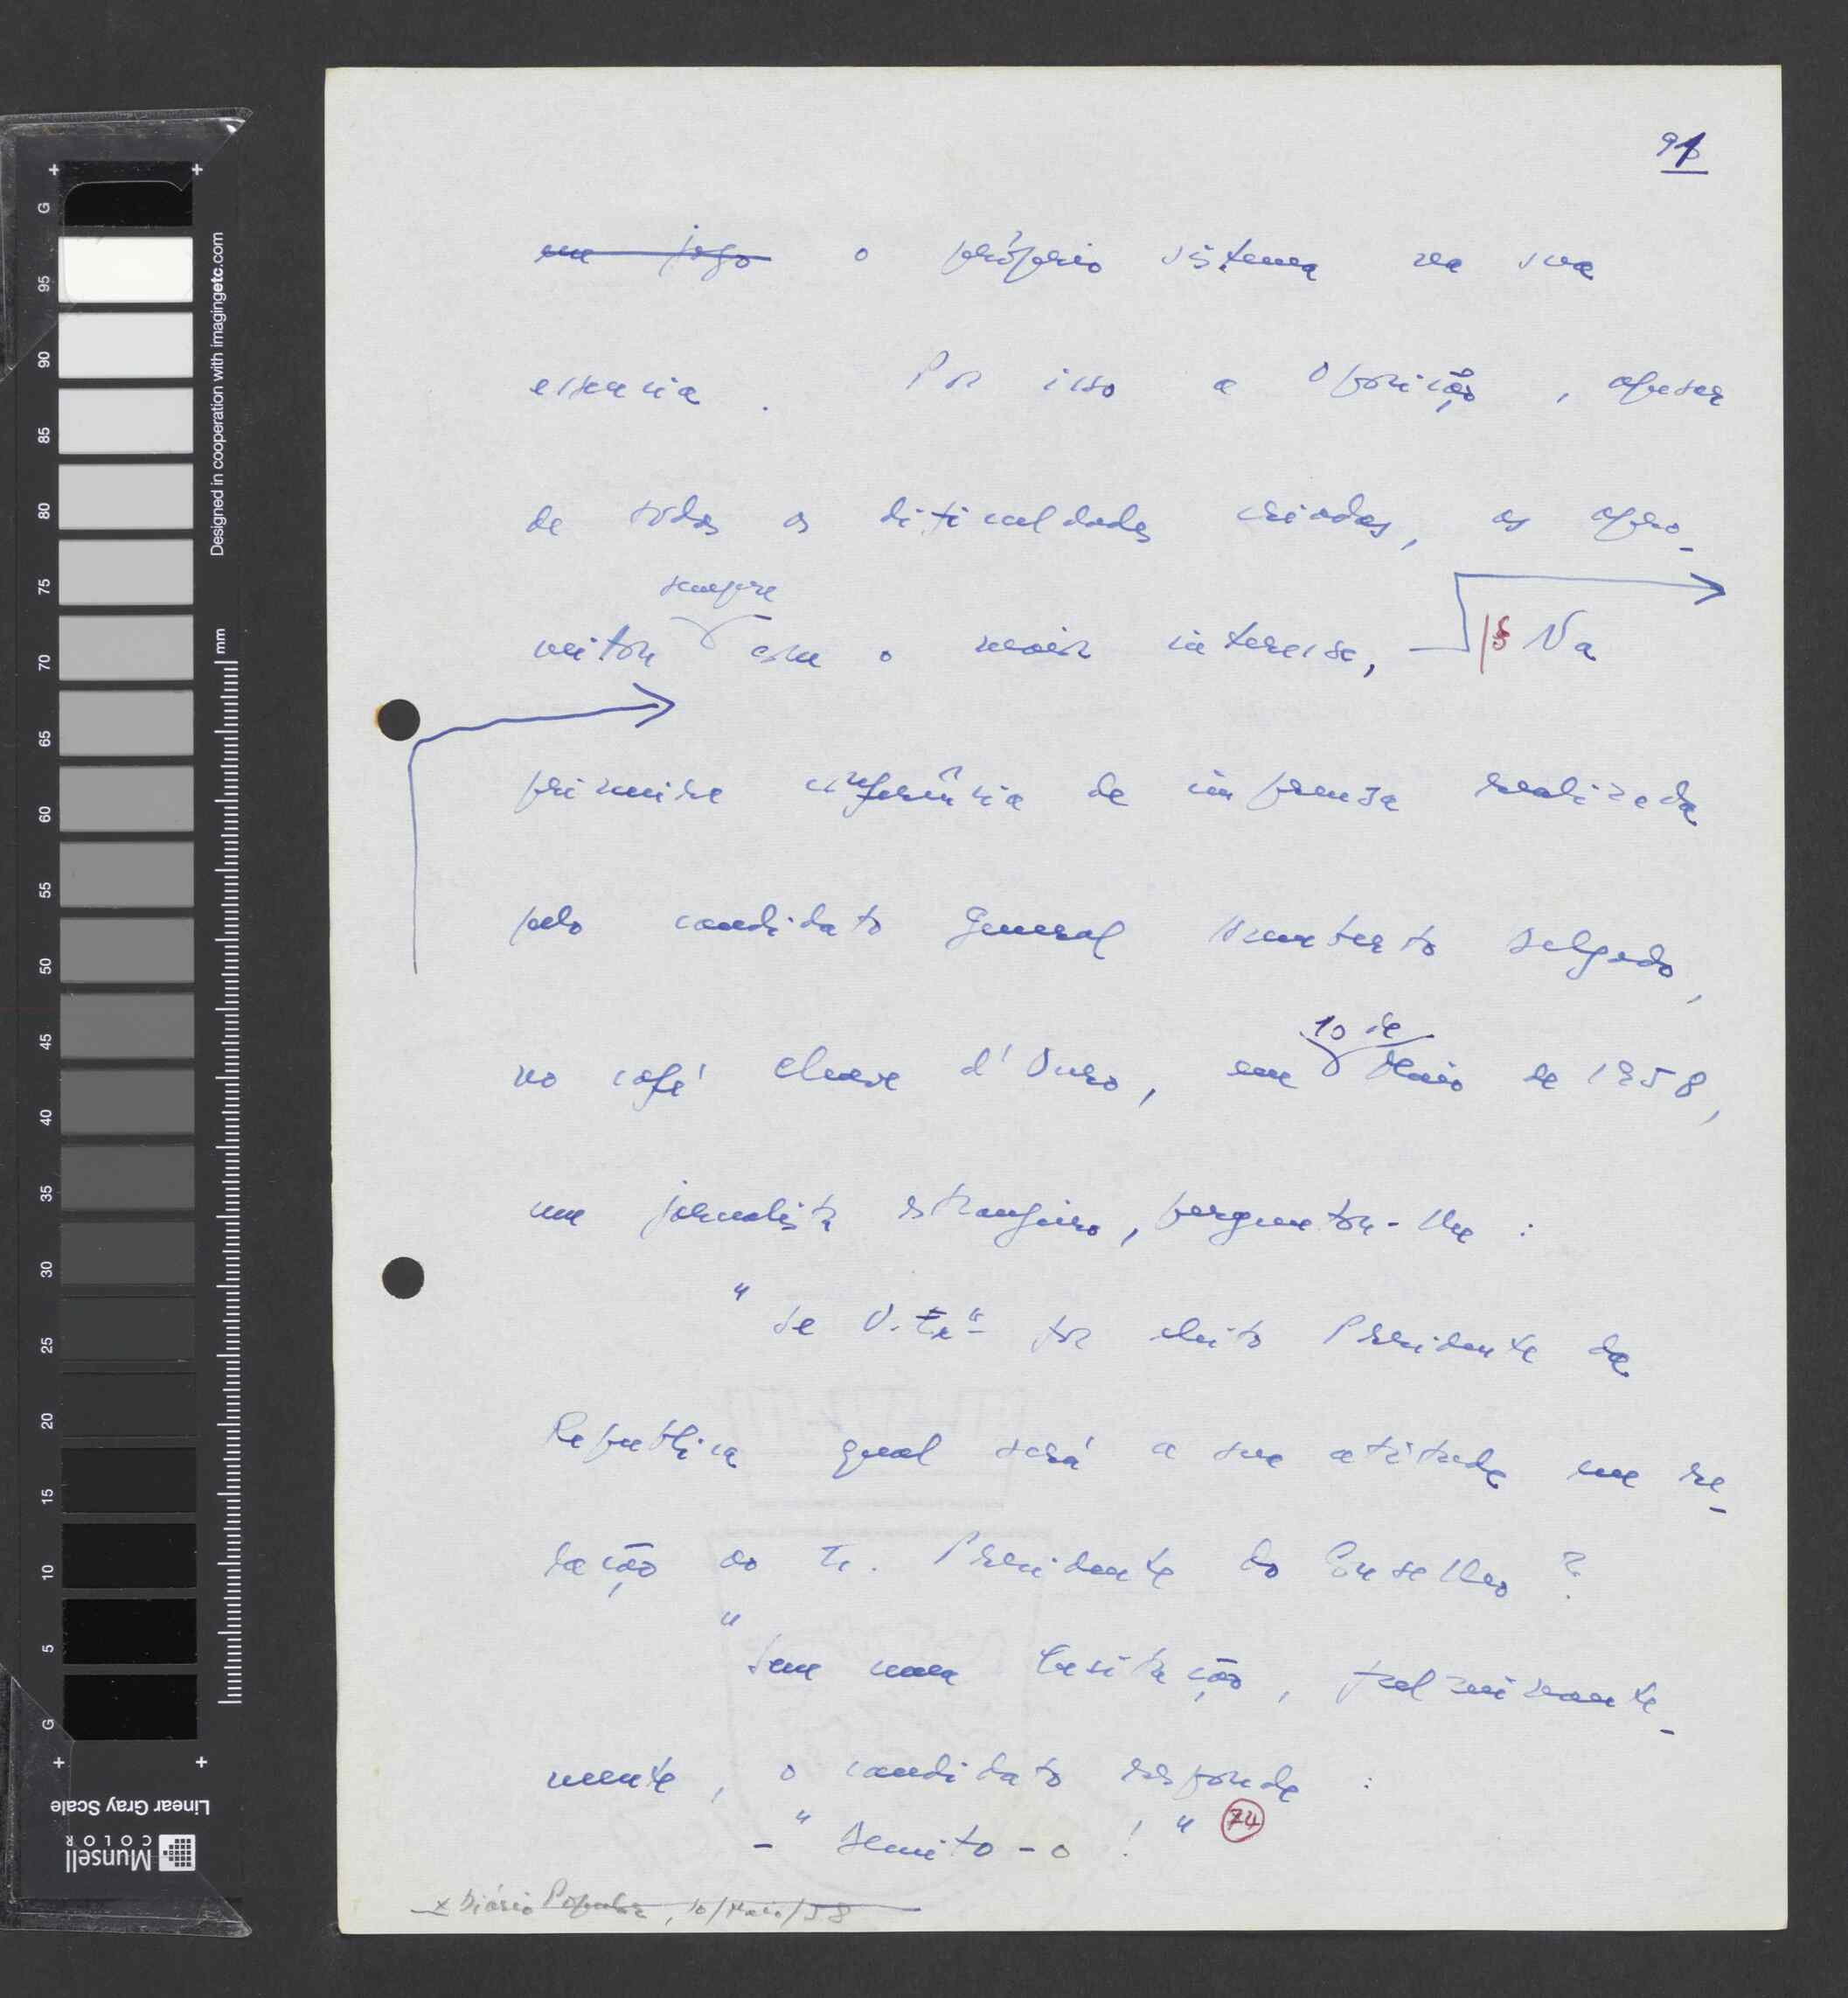 91
em jogo o próprio sistema na sua
essencia. Por isso a Oposição, apesar
de todas as dificuldades criadas, as apro-
sempre
veitou com o maior interesse, Na
primeira conferência de imprensa realizada
pelo candidato General Humberto Delgado,
10 de
no café Chave d'Ouro, em Maio de 1958,
um jornalista estrangeiro, perguntou-lhe :
"Se V. Exª for eleito Presidente da
Republica qual será a sua atitude em re-
lação ao Sr. Presidente do Conselho ?
"Sem uma hesitação, fulminante-
mente, o candidato responde :
- "Demito-o ! " 74
x Diário Popular, 10/Maio/58
G 95 90 85 80 75 70 65 60 55 50 45 40 35 30 25 20 15 10 5 G
mm
Designed in cooperation with imagingetc.com
Linear Gray Scale
Munsell
COLOR